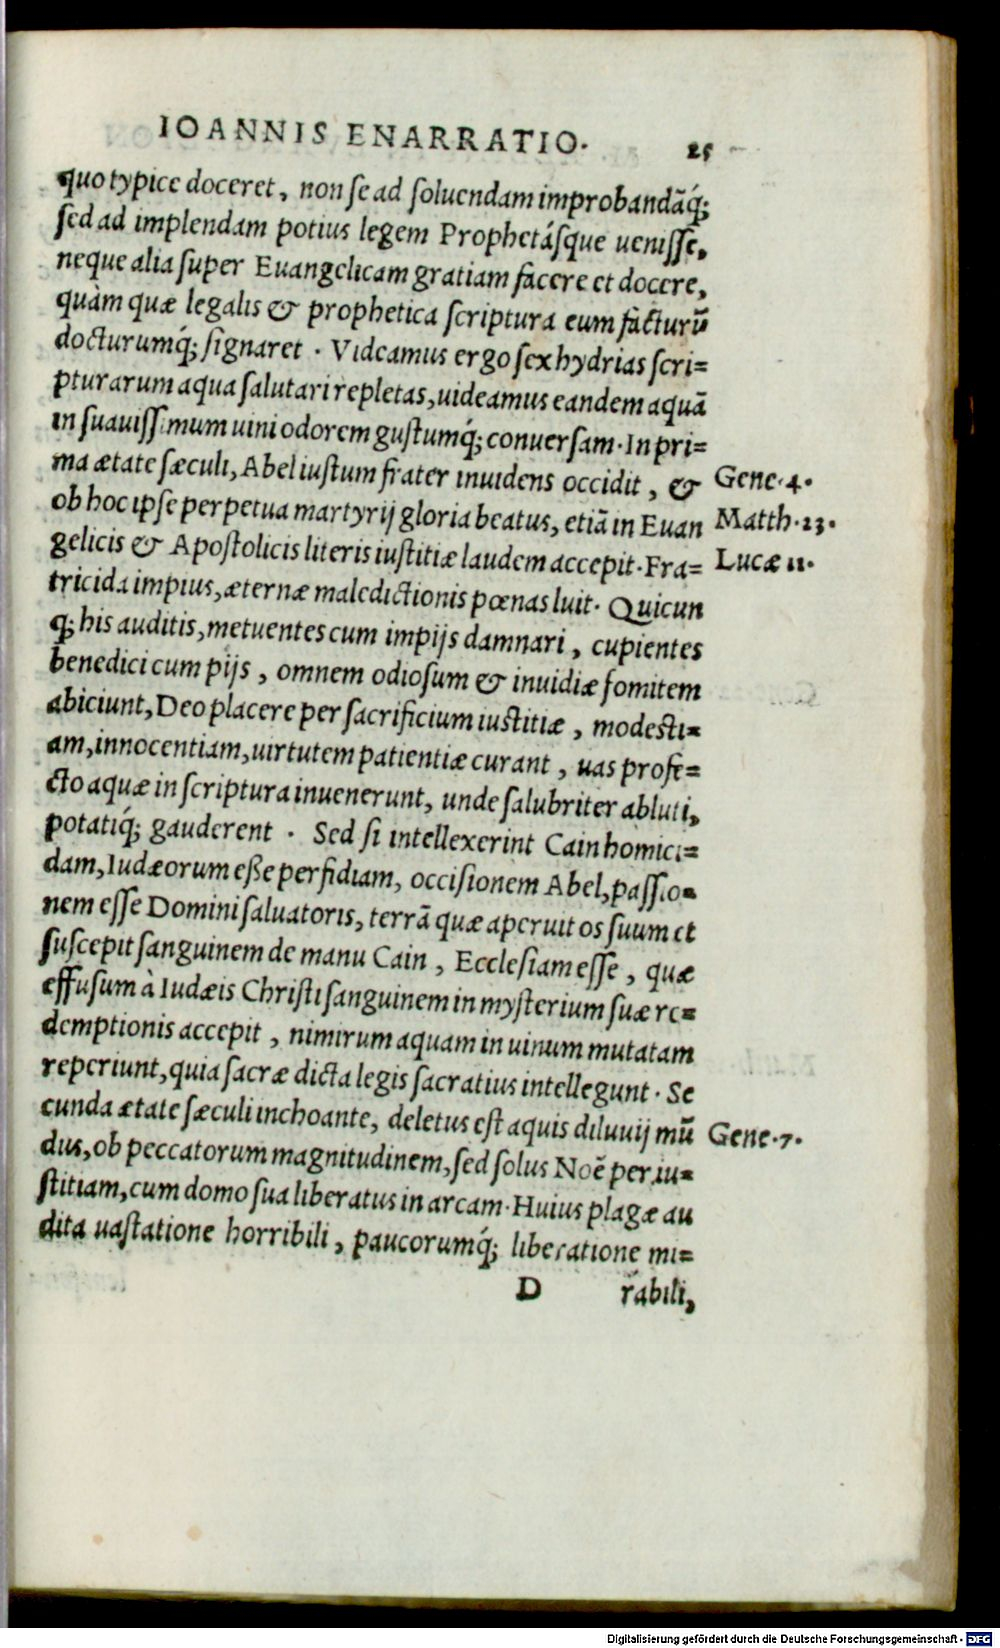 IOANNIS ENARRATIO. 25
quo typice doceret, non se ad soluendam improbandāq́;
sed ad implendam potius legem Prophetásque uenisse,
neque alia super Euangelicam gratiam facere et docere,
quàm quæ legalis & prophetica scriptura eum facturū
docturumq́; signaret. Videamus ergo sex hydrias scri=
pturarum aqua salutari repletas, uideamus eandem aquā
in suauissimum uini odorem gustumq́; conuersam. In pri=
ma ætate sæculi, Abel iustum frater inuidens occidit, & Gene.4.
ob hoc ipse perpetua martyrij gloria beatus, etiā in Euan Matth.23.
gelicis & Apostolicis literis iustitiæ laudem accepit. Fra= Lucæ 11.
tricida impius, æternæ maledictionis pœnas luit. Quicun
q; his auditis, metuentes cum impijs damnari, cupientes
benedici cum pijs, omnem odiosum & inuidiæ fomitem
abiciunt, Deo placere per sacrificium iustitiæ, modesti=
am, innocentiam, uirtutem patientiæ curant, uas profe=
cto aquæ in scriptura inuenerunt, unde salubriter abluti,
potatiq́; gauderent. Sed si intellexerint Cain homici=
dam, Iudæorum eße perfidiam, occisionem Abel, passio=
nem esse Domini saluatoris, terrā quæ aperuit os suum et
suscepit sanguinem de manu Cain, Ecclesiam esse, quæ
effusum à Iudæis Christi sanguinem in mysterium suæ re=
demptionis accepit, nimirum aquam in uinum mutatam
reperiunt, quia sacræ dicta legis sacratius intellegunt. Se
cunda ætate sæculi inchoante, deletus est aquis diluuij mū Gene.7.
dus, ob peccatorum magnitudinem, sed solus Noē per iu=
stitiam, cum domo sua liberatus in arcam. Huius plagæ au
dita uastatione horribili, paucorumq́; liberatione mi=
D rabili,
Digitalisierung gefördert durch die Deutsche Forschungsgemeinschaft - DFG